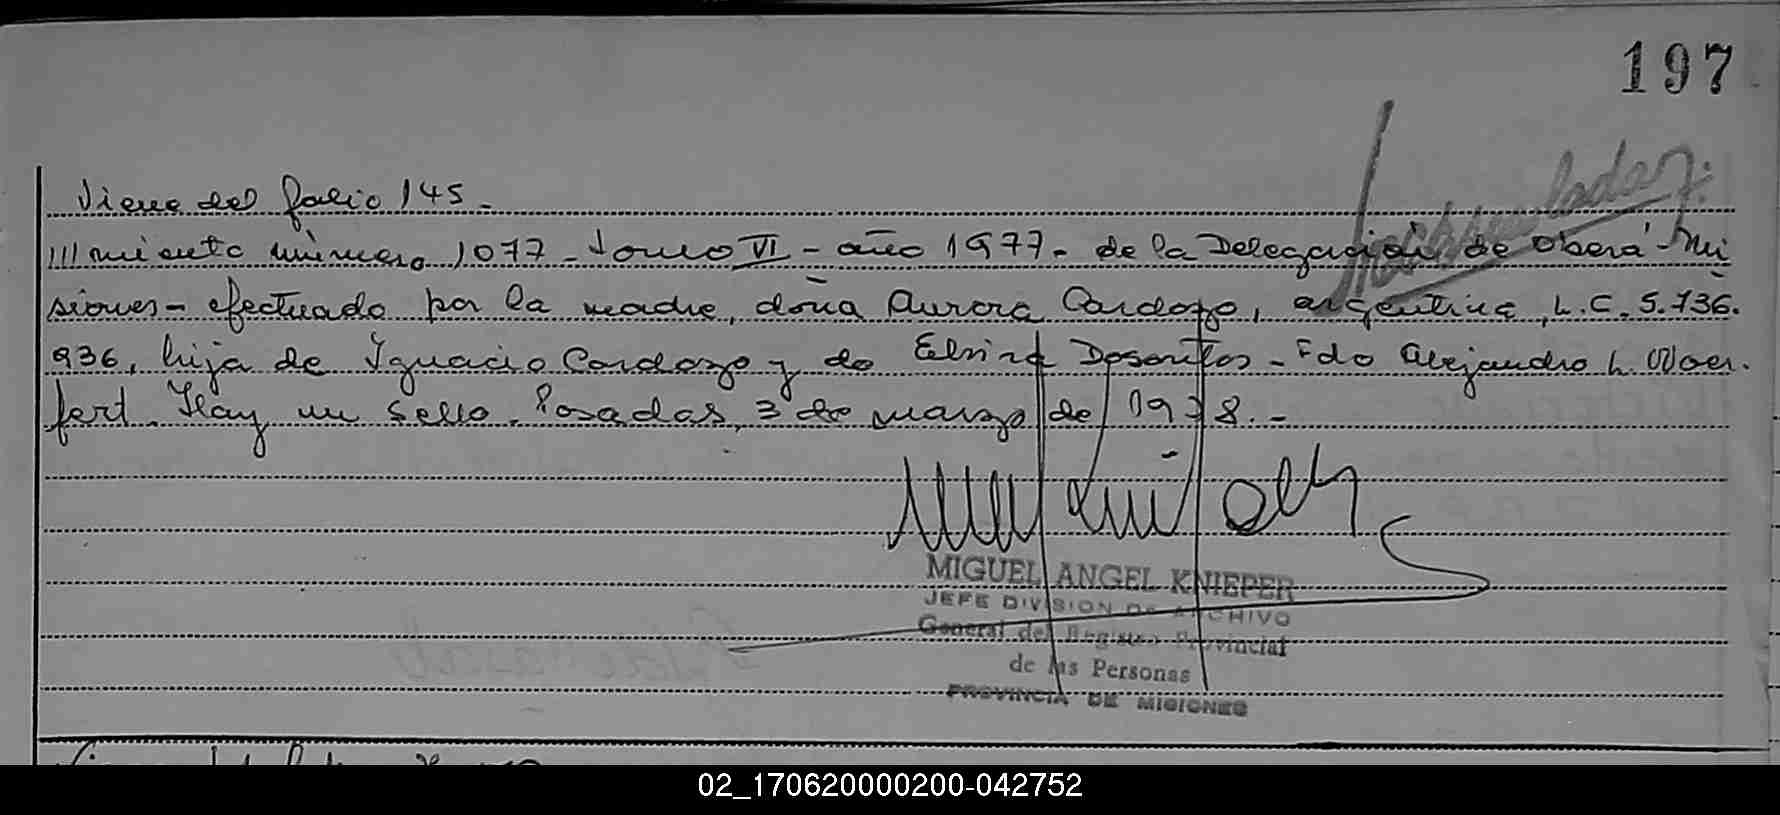 197
Viene del folio 145.-
miento número 1077 - tomo VI - año 1977 - de la Delegación de Oberá - Mi
siones - efectuado por la madre, doña Aurora Cardozo, argentina, L.C. 5.736.
936, hija de Ignacio Cardozo y de Elvira Dosantos - Fdo Alejandro L. Woer.
fert. Hay un sello. Posadas, 3 de marzo de 1978.-
MIGUEL ANGEL KNIEPER
JEFE DIVISION DE ARCHIVO
General del Registro Provincial
de las Personas
PROVINCIA DE MISIONES
02_170620000200-042752